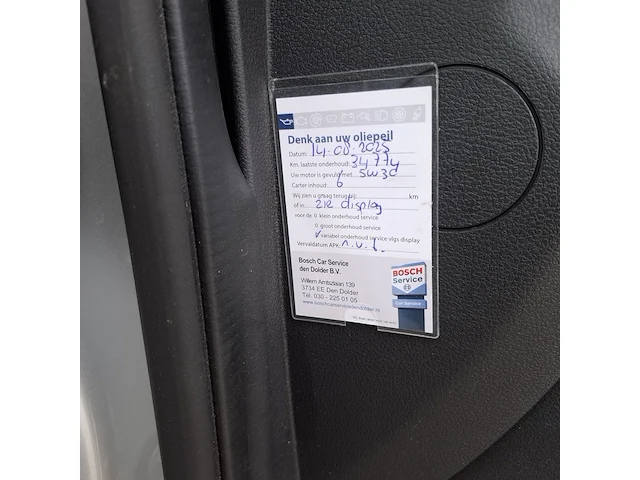 Denk aan uw oliepeil
Datum: 14-08-2025
Km. laatste onderhoud: 34774
Uw motor is gevuld met 5W30
Carter inhoud: 6
Wij zien u graag terug bij: km
of in zie display
voor de 0 klein onderhoud service
0 groot onderhoud service
✓ variabel onderhoud service vlgs display
Vervaldatum APK: n.v.t.
Bosch Car Service
den Dolder B.V.
Willem Arntszlaan 139
3734 EE Den Dolder
Tel: 030 - 225 01 05
www.boschcarservicedendolder.nl
BOSCH
Service
Car Service